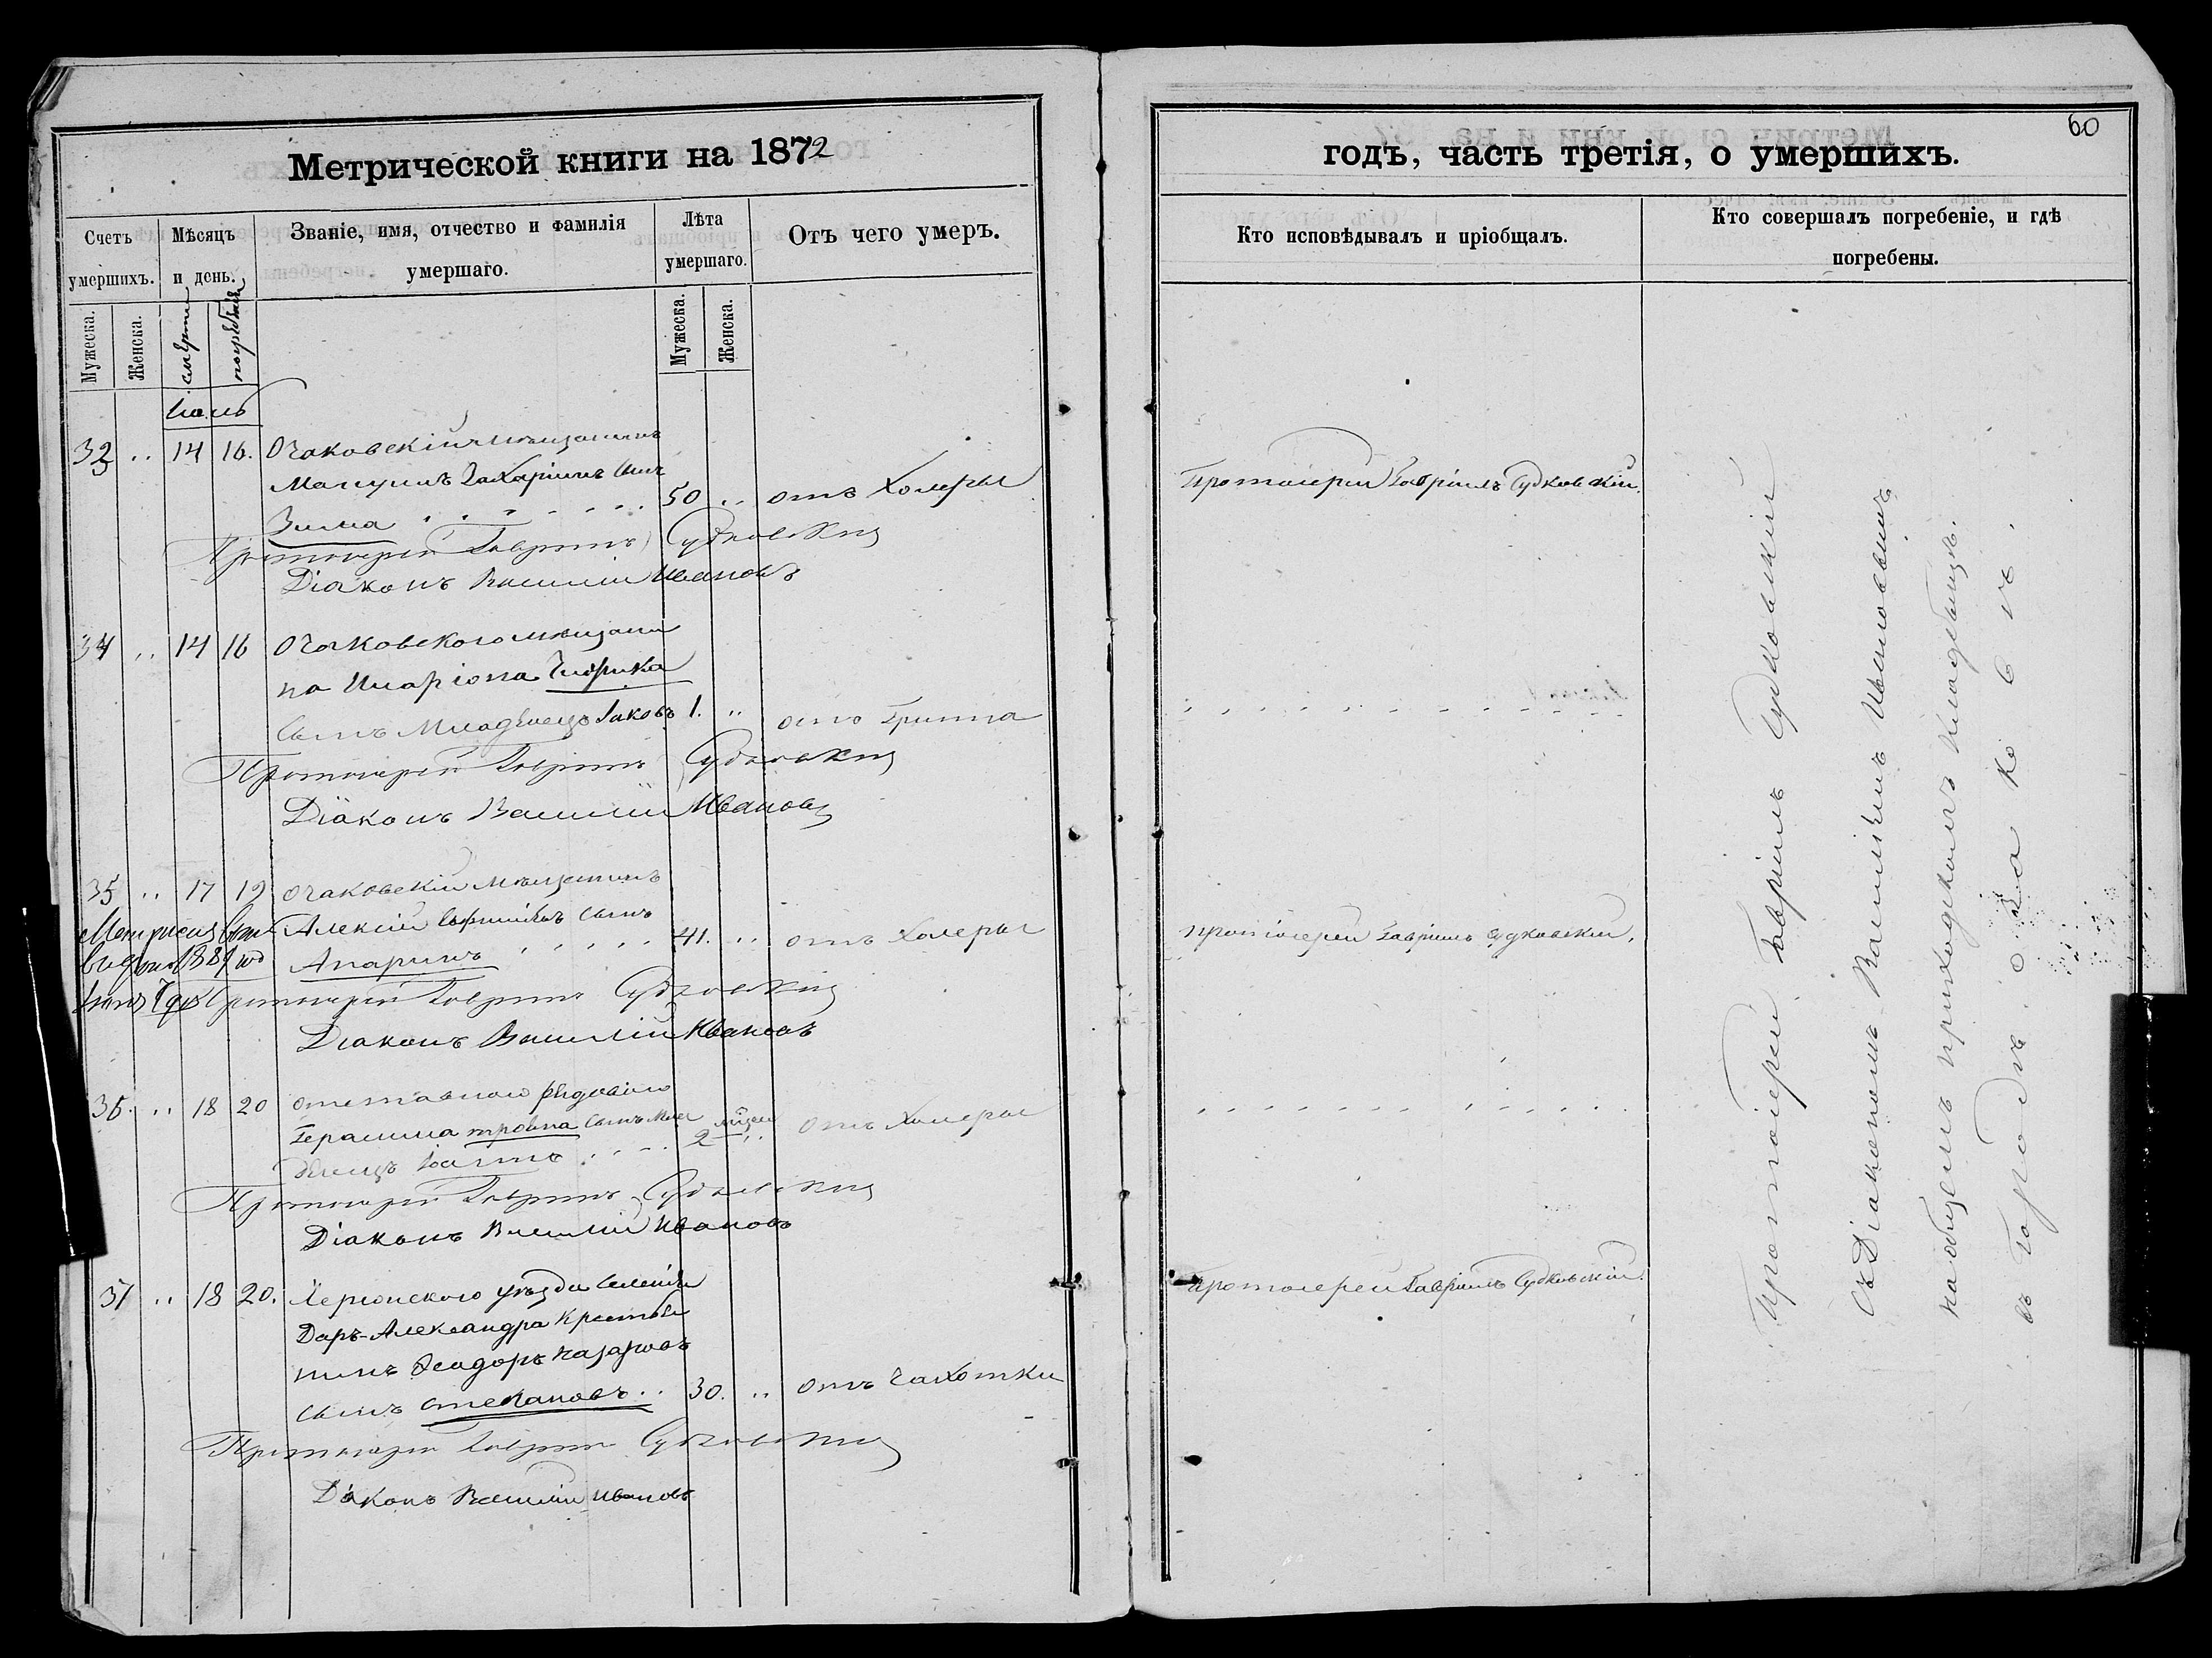 Метрической книги на 1872
Счетъ умершихъ.
Мѣсяцъ и день.
Званіе, имя, отчество и фамилія умершаго.
Лѣта умершаго.
Отъ чего умеръ.
Мужеска.
Женска.
смерти
погребенія
Мужеска.
Женска.
Іюль
32 .. 14 16. Очаковскій мѣщанинъ
Захаріинъ сынъ
Зима 50 .. отъ Холеры
Протоіерей Гавріилъ Судковскій
Діаконъ Василій Ивановъ
34 .. 14 16 Очаковскаго мѣщани
на Иларіона
сынъ Младенецъ Іаковъ 1. .. отъ Гриппа
Протоіерей Гавріилъ Судковскій
Діаконъ Василій Ивановъ
35 .. 17 19 Очаковскій мѣщанинъ
Алексій сынъ
Апаринъ 41. .. отъ Холеры
Протоіерей Гавріилъ Судковскій
Діаконъ Василій Ивановъ
36. .. 18 20 отставного рядового
Герасима сынъ Мла
денецъ 2 .. отъ Холеры
Протоіерей Гавріилъ Судковскій
Діаконъ Василій Ивановъ
37 .. 18 20. Херсонского уѣзда Селенія
Даръ-Александра Крестья
нинъ Ѳеодоръ Назаровъ
сынъ Степановъ .. 30. .. отъ Чахотки
Протоіерей Гавріилъ Судковскій
Діаконъ Василій Ивановъ
60
годъ, часть третія, о умершихъ.
Кто исповѣдывалъ и пріобщалъ.
Кто совершалъ погребеніе, и гдѣ погребены.
Протоіерей Гавріилъ Судковскій.
Протоіерей Гавріилъ Судковскій.
Протоіерей Гавріилъ Судковскій.
Протоіерей Гавріилъ Судковскій
съ Діакономъ Василіемъ Ивановымъ
на общемъ приходскомъ кладбищѣ.
въ Городѣ Очаковѣ.